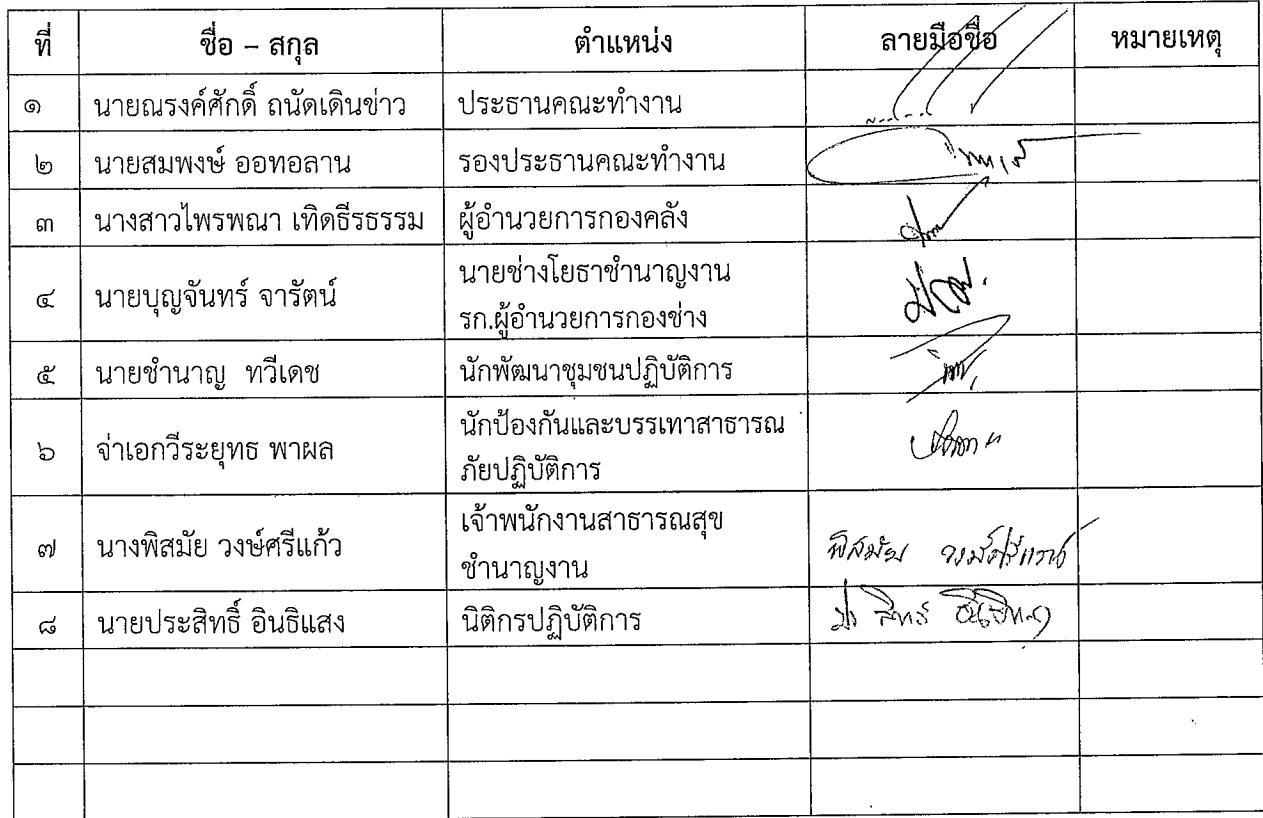 ที่ ชื่อ – สกุล ตำแหน่ง ลายมือชื่อ หมายเหตุ
๑ นายณรงค์ศักดิ์ ถนัดเดินข่าว ประธานคณะทำงาน
๒ นายสมพงษ์ ออทอลาน รองประธานคณะทำงาน
๓ นางสาวไพรพณา เทิดธีรธรรม ผู้อำนวยการกองคลัง
๔ นายบุญจันทร์ จารัตน์ นายช่างโยธาชำนาญงาน
รก.ผู้อำนวยการกองช่าง
๕ นายชำนาญ ทวีเดช นักพัฒนาชุมชนปฏิบัติการ
๖ จ่าเอกวีระยุทธ พาผล นักป้องกันและบรรเทาสาธารณ
ภัยปฏิบัติการ
๗ นางพิสมัย วงษ์ศรีแก้ว เจ้าพนักงานสาธารณสุข
ชำนาญงาน พิสมัย วงษ์ศรีแก้ว
๘ นายประสิทธิ์ อินธิแสง นิติกรปฏิบัติการ